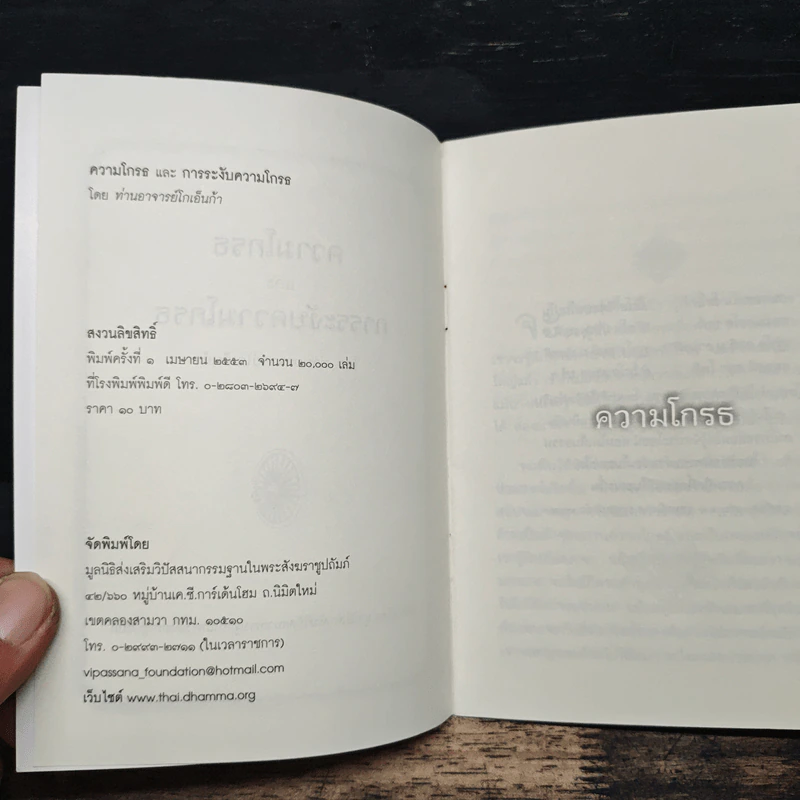 ความโกรธ และ การระงับความโกรธ
โดย ท่านอาจารย์โกเอ็นก้า
สงวนลิขสิทธิ์
พิมพ์ครั้งที่ ๑ เมษายน ๒๕๕๓ จำนวน ๒๐,๐๐๐ เล่ม
ที่โรงพิมพ์พิมพ์ดี โทร. ๐-๒๘๐๓-๒๖๙๔-๗
ราคา ๑๐ บาท
จัดพิมพ์โดย
มูลนิธิส่งเสริมวิปัสสนากรรมฐานในพระสังฆราชูปถัมภ์
๔๒/๖๖๐ หมู่บ้านเค.ซี.การ์เด้นโฮม ถ.นิมิตใหม่
เขตคลองสามวา กทม. ๑๐๕๑๐
โทร. ๐-๒๙๙๓-๒๗๑๑ (ในเวลาราชการ)
vipassana_foundation@hotmail.com
เว็บไซต์ www.thai.dhamma.org
ความโกรธ